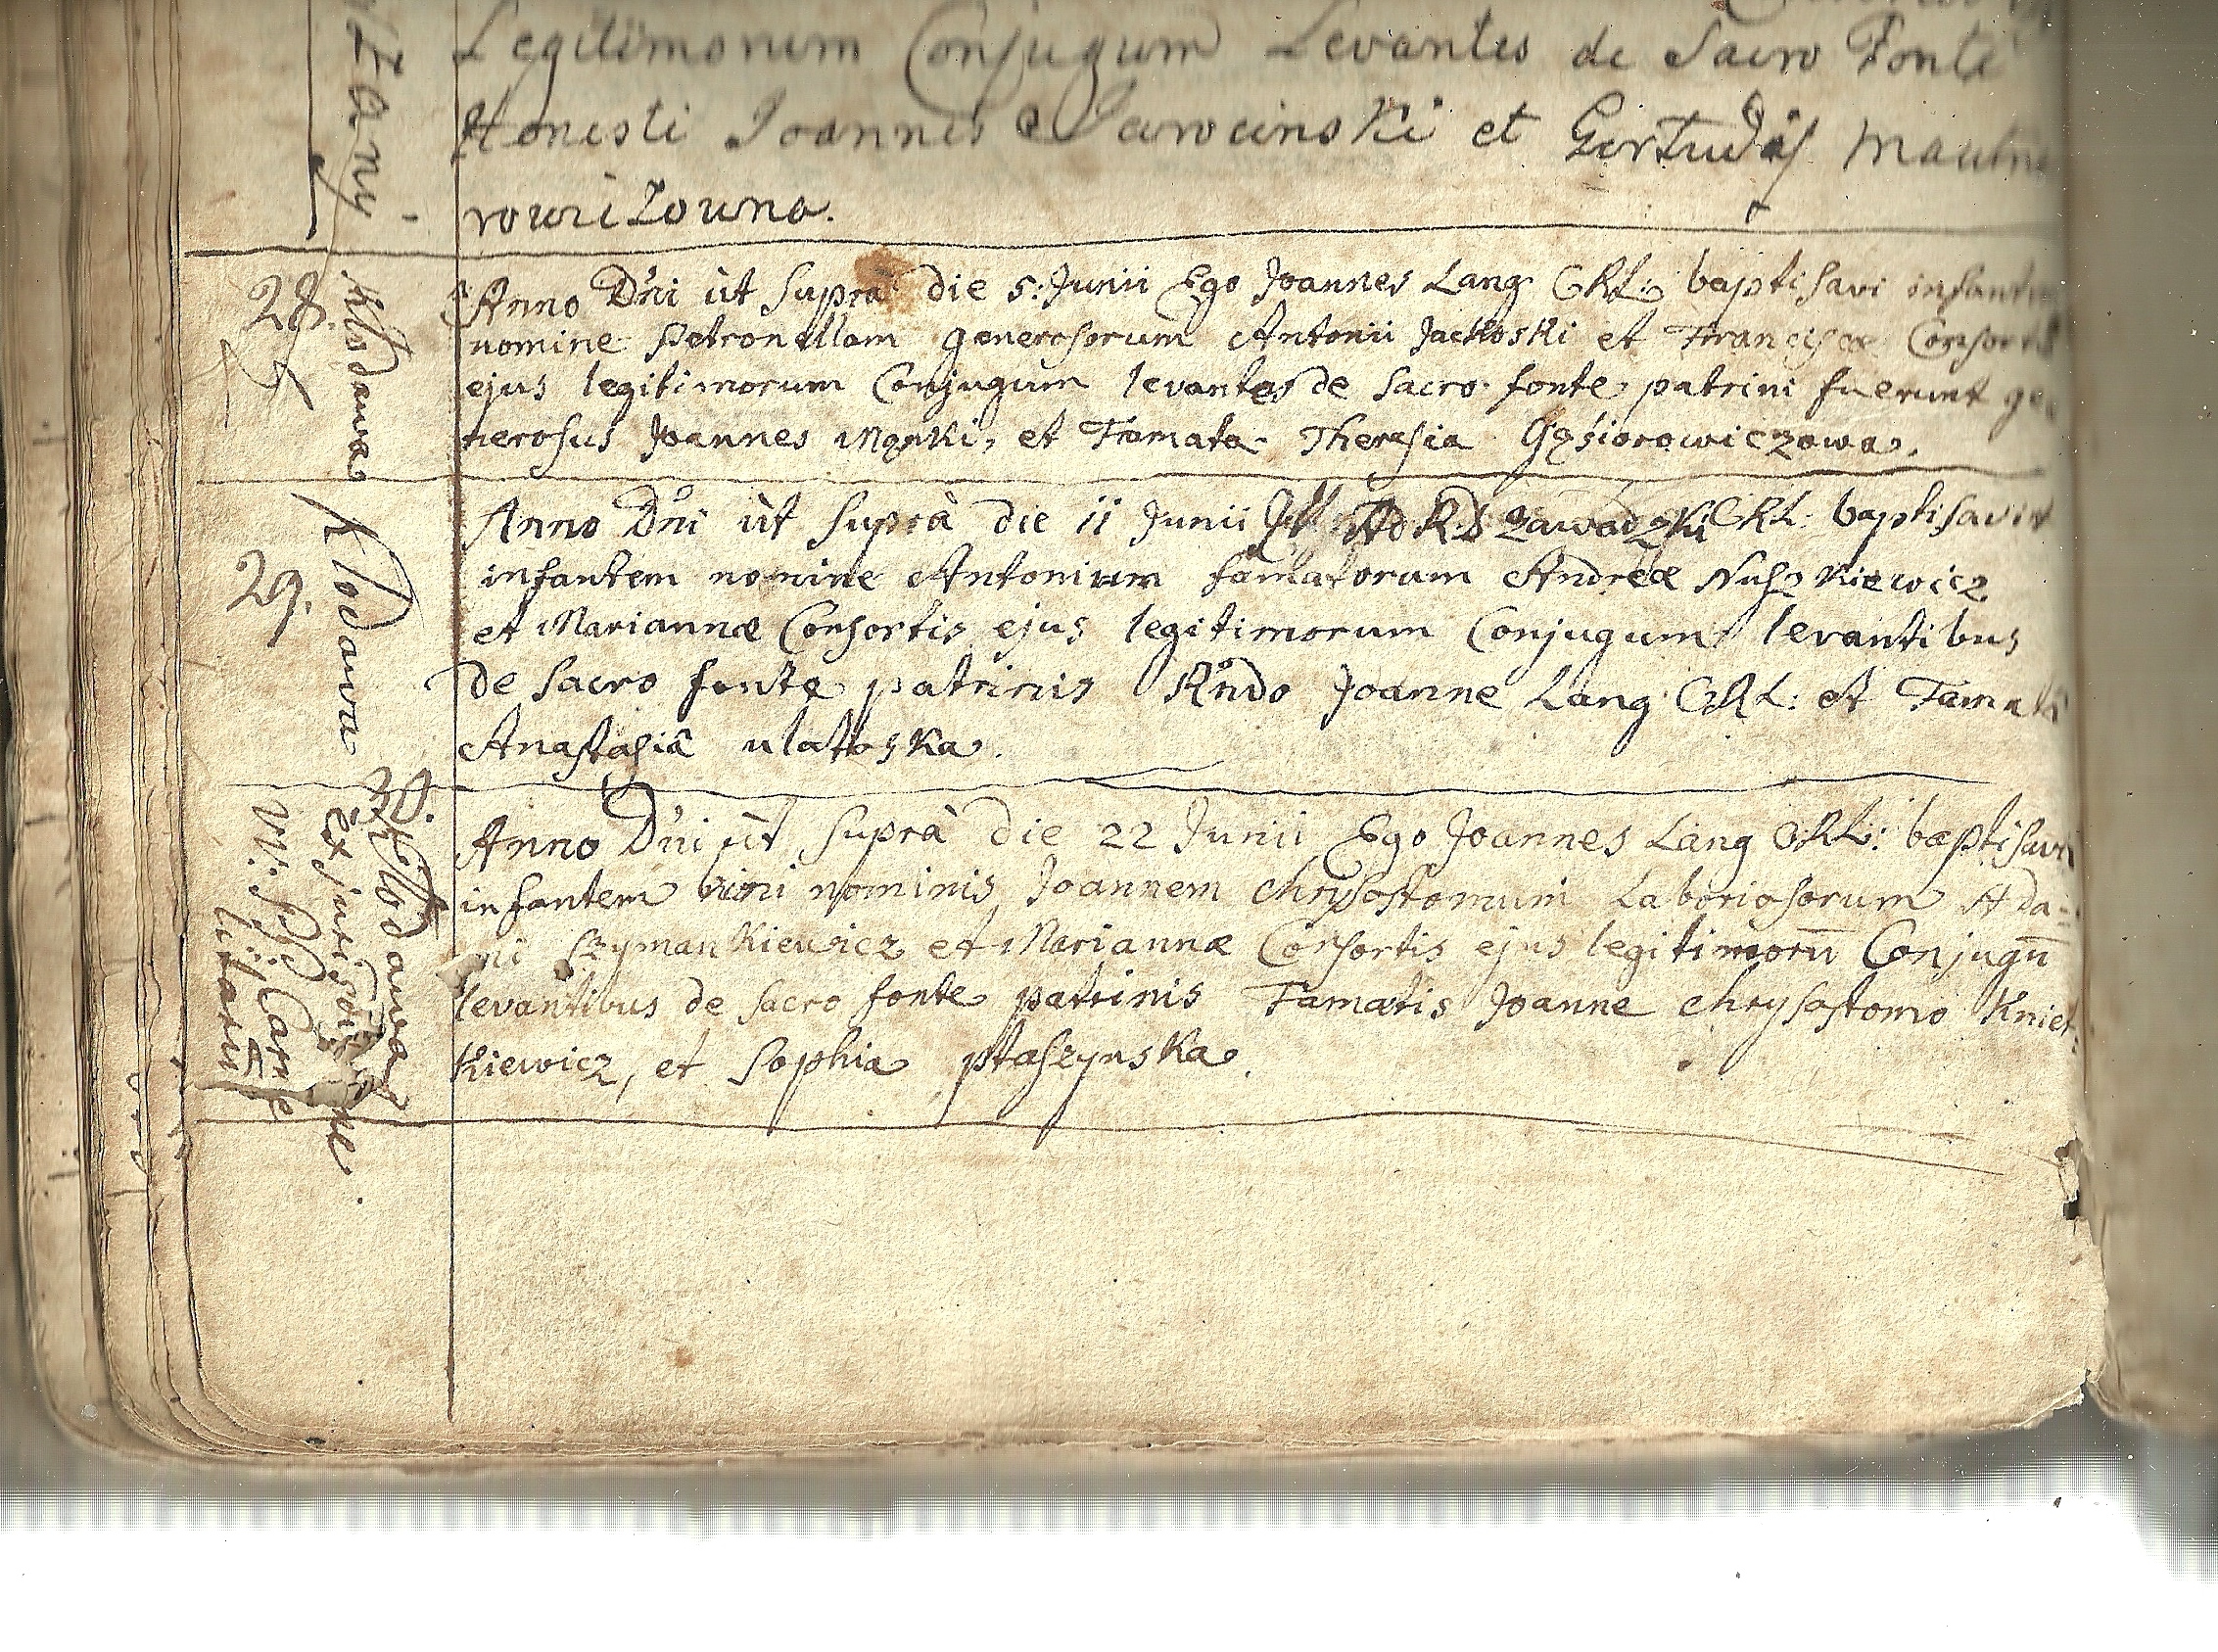 Legitimorum Conjugum Levantes de Sacro Fonte
Honesti Joannes Jarocinski et Gertudis
28.
Klodawa
Anno Dni ùt Suprà die 5: Junii Ego Joannes Lang CRL: baptisavi
nomine Petronellam generosorum Antonii Jackoski et Franciscæ
ejus legitimorum Conjugum levantes de Sacro fonte patrini fuerunt ge
nerosus Joannes et Famata Theresia Gąsiorowiczowa.
29.
Klodawa
Anno Dni ùt Suprà die 11 Junii Ad R D Zawadzki CRL: baptisavit
infantem nomine Antonium famatorum Andreæ Nuszkiewicz
et Mariannæ Consortis ejus legitimorum Conjugum levantibus
de Sacro fonte patrinis Rndo Joanne Lang CRL: et
Anastasiâ ulatoska.
30.
Klodawa
ex
VV: PP: Carme
litarū
Anno Dni ùt Suprà die 22 Junii Ego Joannes Lang CRL: baptisavi
infantem bini nominis Joannem Chrysostomum Laboriosorum Ada=
mi Szymankiewicz et Mariannæ Consortis ejus legitimorū Conjugū
levantibus de Sacro fonte patrinis Famatis Joanne Chrysostomo Kniet:
kiewicz, et Sophia ptaszynska.